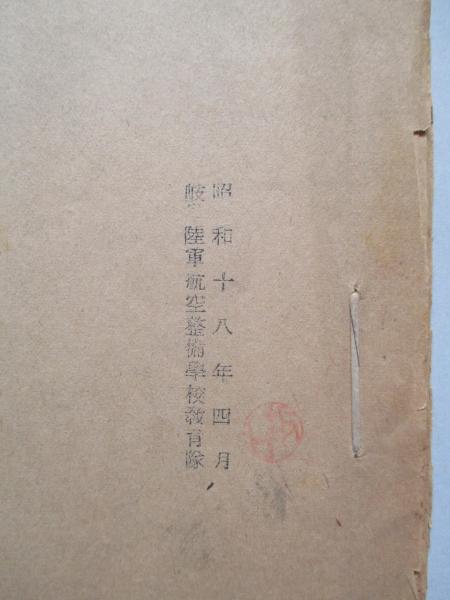 昭和十八年四月
岐阜陸軍航空整備學校教育隊